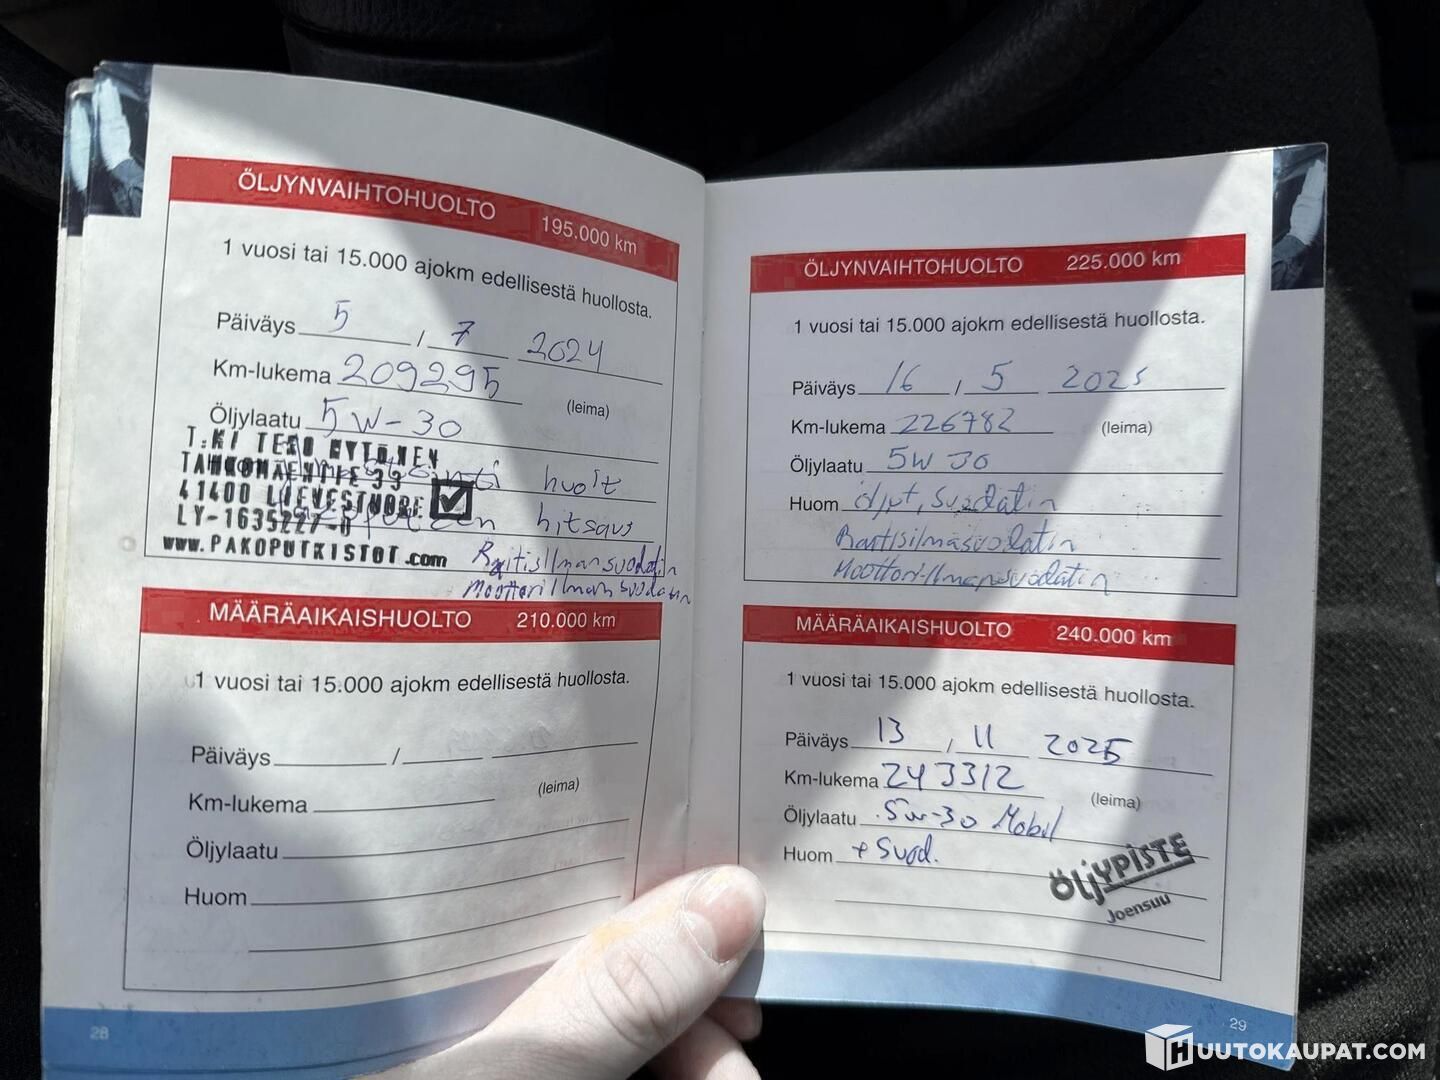 ÖLJYNVAIHTOHUOLTO 195.000 km
1 vuosi tai 15.000 ajokm edellisestä huollosta.
Päiväys 5 / 7 2024
Km-lukema 209295
(leima)
Öljylaatu 5W-30
T:MI TERO KYTÖNEN
huolt
41400 LIEVESTUORE
hitsaus
LY-1635227-0
www.PAKOPUTKISTOT.com
Raitisilmansuodatin
Moottorilmansuodatin
MÄÄRÄAIKAISHUOLTO 210.000 km
1 vuosi tai 15.000 ajokm edellisestä huollosta.
Päiväys /
(leima)
Km-lukema
Öljylaatu
Huom
28
ÖLJYNVAIHTOHUOLTO 225.000 km
1 vuosi tai 15.000 ajokm edellisestä huollosta.
Päiväys 16 / 5 2025
Km-lukema 226782 (leima)
Öljylaatu 5W30
Huom öljyt, suodatin
Raitisilmasuodatin
Moottori-ilmansuodatin
MÄÄRÄAIKAISHUOLTO 240.000 km
1 vuosi tai 15.000 ajokm edellisestä huollosta.
Päiväys 13 / 11 2025
Km-lukema 243312
(leima)
Öljylaatu 5w-30 Mobil
Huom + Suod.
ÖLJYPISTE
Joensuu
29
HUUTOKAUPAT.COM